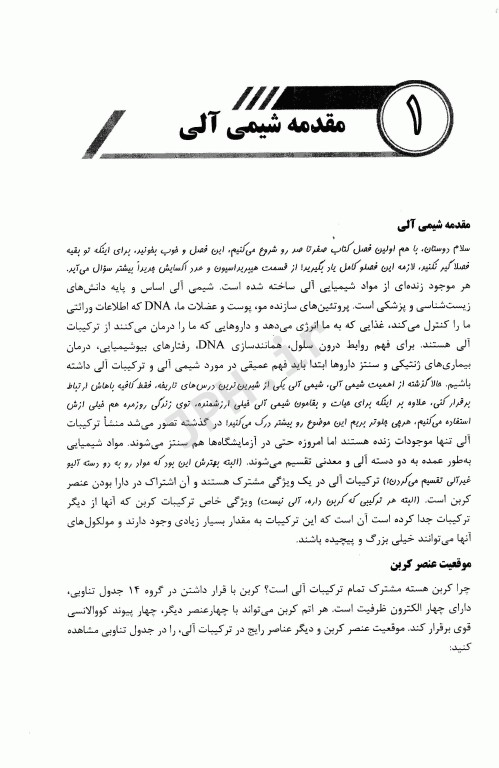 ۱
مقدمه شیمی آلی
مقدمه شیمی آلی
سلام دوستان، با هم اولین فصل کتاب صفر تا صد رو شروع می‌کنیم، این فصل و خوب بخونید، برای اینکه تو بقیه
فصلا گیر نکنید، لازمه این فصلو کامل یاد بگیرید! از قسمت هیبریداسیون و عدد اکسایش جدیداً بیشتر سؤال می‌آید.
هر موجود زنده‌ای از مواد شیمیایی آلی ساخته شده است. شیمی آلی اساس و پایه دانش‌های
زیست‌شناسی و پزشکی است. پروتئین‌های سازنده مو، پوست و عضلات ما، DNA که اطلاعات وراثتی
ما را کنترل می‌کند، غذایی که به ما انرژی می‌دهد و داروهایی که ما را درمان می‌کنند از ترکیبات
آلی هستند. برای فهم روابط درون سلول، همانندسازی DNA، رفتارهای بیوشیمیایی، درمان
بیماری‌های ژنتیکی و سنتز داروها ابتدا باید فهم عمیقی در مورد شیمی آلی و ترکیبات آلی داشته
باشیم. حالا گذشته از اهمیت شیمی آلی، شیمی آلی یکی از شیرین ترین درس‌های تاریخه، فقط کافیه باهاش ارتباط
برقرار کنی، علاوه بر اینکه برای حیات و بقامون شیمی آلی خیلی ارزشمنده، توی زندگی روزمره هم خیلی ازش
استفاده می‌کنیم، هرچی جلوتر بریم این موضوع رو بیشتر درک می‌کنید! در گذشته تصور می‌شد منشأ ترکیبات
آلی تنها موجودات زنده هستند اما امروزه حتی در آزمایشگاه‌ها هم سنتز می‌شوند. مواد شیمیایی
به‌طور عمده به دو دسته آلی و معدنی تقسیم می‌شوند. (البته بهترش این بود که مواد رو به دو دسته آلی و
غیرآلی تقسیم می‌کردن!) ترکیبات آلی در یک ویژگی مشترک هستند و آن اشتراک در دارا بودن عنصر
کربن است. (البته هر ترکیبی که کربن داره، آلی نیست) ویژگی خاص ترکیبات کربن که آنها از دیگر
ترکیبات جدا کرده است آن است که این ترکیبات به مقدار بسیار زیادی وجود دارند و مولکول‌های
آنها می‌توانند خیلی بزرگ و پیچیده باشند.
موقعیت عنصر کربن
چرا کربن هسته مشترک تمام ترکیبات آلی است؟ کربن با قرار داشتن در گروه ۱۴ جدول تناوبی،
دارای چهار الکترون ظرفیت است. هر اتم کربن می‌تواند با چهارعنصر دیگر، چهار پیوند کووالانسی
قوی برقرار کند. موقعیت عنصر کربن و دیگر عناصر رایج در ترکیبات آلی، را در جدول تناوبی مشاهده
کنید: